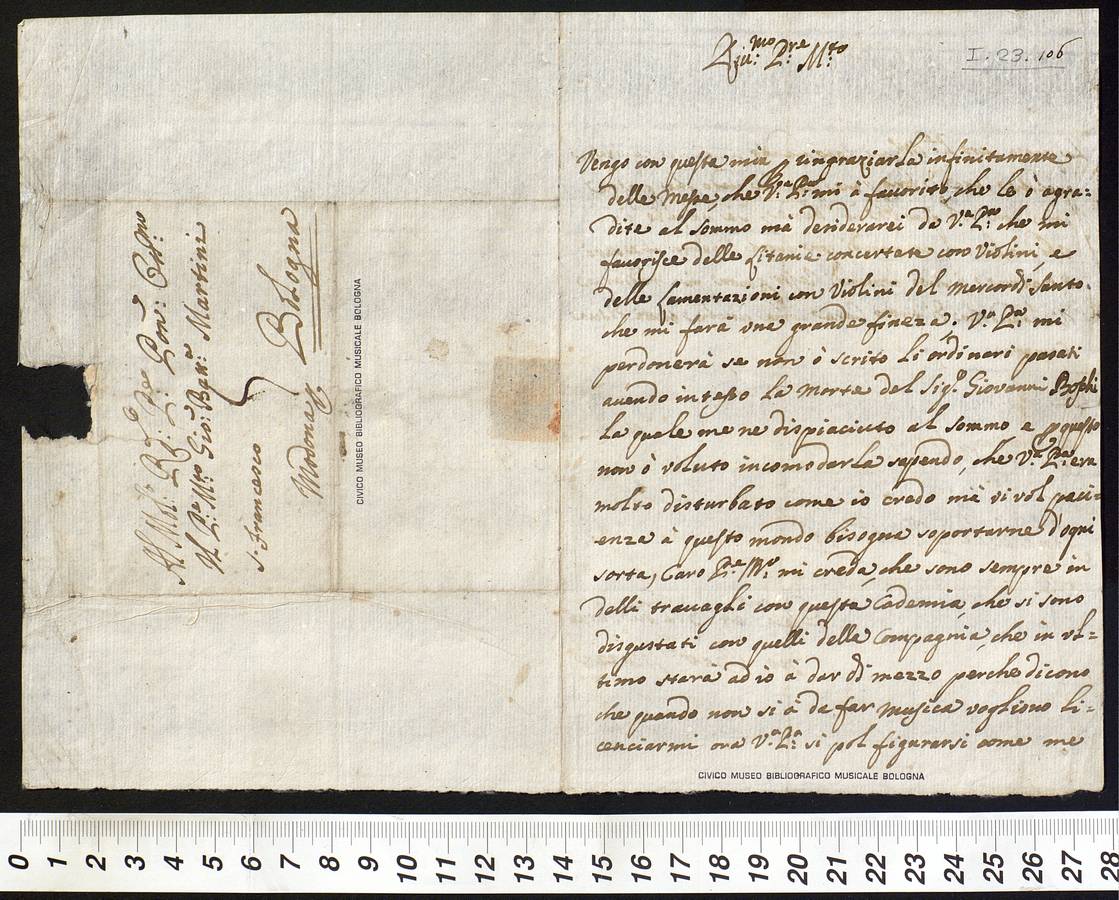 Al Mol: R.: P.re Pon: Col.mo
Il P.: M.ro Gio: Batt.a Martini
S. Francesco
Modona p Bologna
CIVICO MUSEO BIBLIOGRAFICO MUSICALE BOLOGNA
R.mo P.re M.ro
I. 23. 106
Vengo con questa mia p ringraziarla infinitamente
delle Messe, che V.a P.a mi à favorito che le ò agra=
dite al sommo mà desiderarei da V.a P.a che mi
favorisce delle Litanie concertate con Violini, e
delle Lamentazioni con Violini del Mercordì Santo
che mi farà una grande fineza. V.a P.a mi
perdonerà se non ò scrito li ordinari pasati
avendo inteso la Morte del Sig.r Giovanni Boschi
la quale me ne dispiaciuto al sommo e p questo
non ò voluto incomodarla sapendo, che V.a P.a era
molto disturbato come io credo mà vi vol paci=
enza à questo mondo bisogna soportarne d'ogni
sorta, Caro P.re M.ro mi creda, che sono sempre in
delli travagli con questa Cademia, che si sono
disgustati con quelli della Compagnia, che in ul=
timo starà ad io à dar di mezzo perche dicono
che quando non si à da far Musica vogliono li=
cenciarmi ora V.a P.a si pol figurarsi come me
CIVICO MUSEO BIBLIOGRAFICO MUSICALE BOLOGNA
0 1 2 3 4 5 6 7 8 9 10 11 12 13 14 15 16 17 18 19 20 21 22 23 24 25 26 27 28